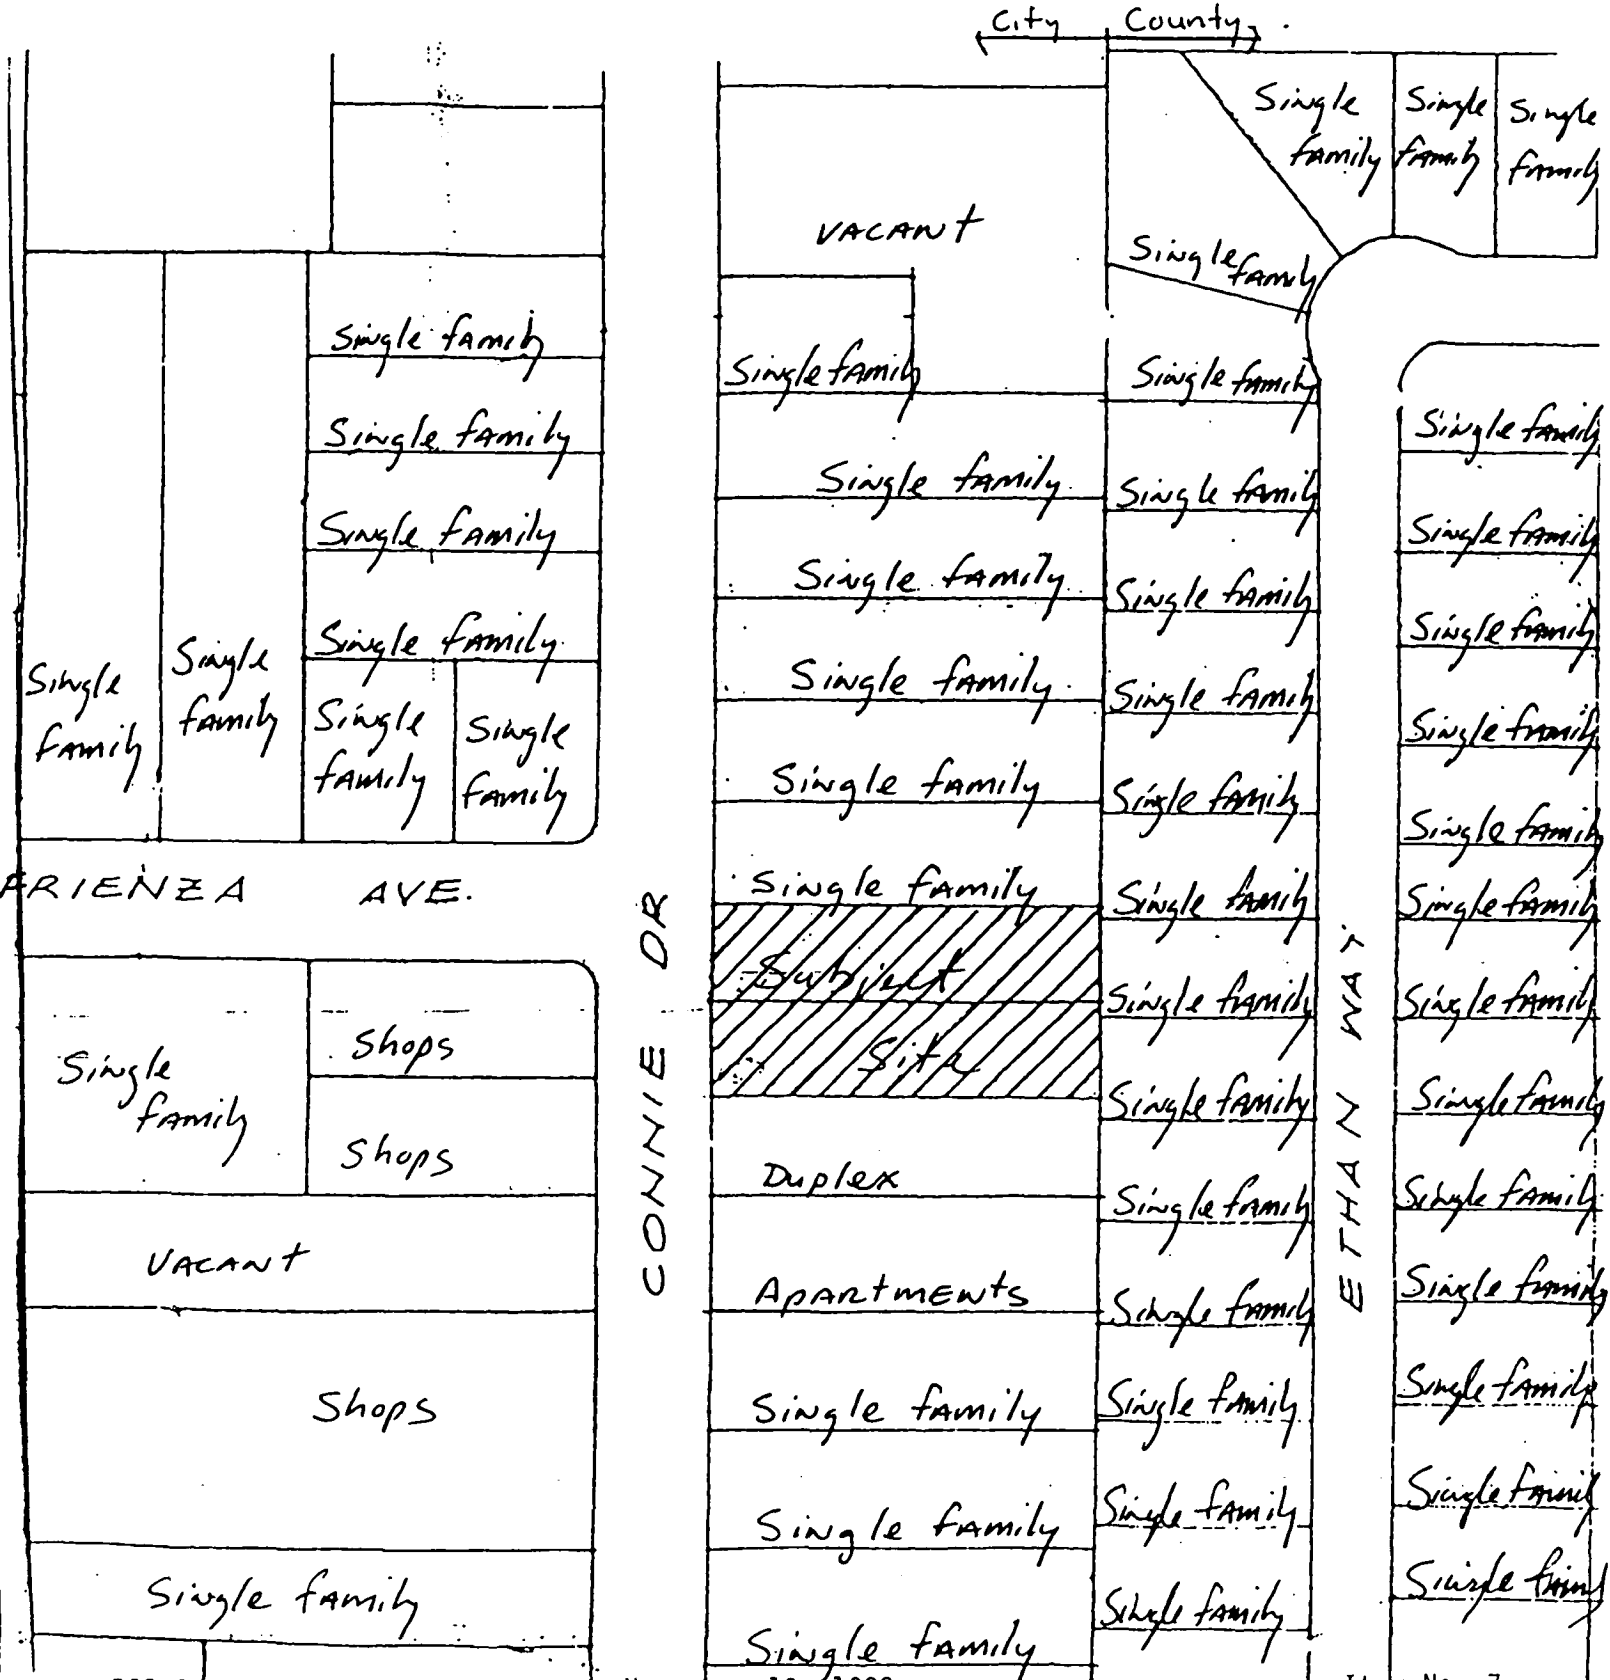 City County
Single family
Single family
Single family
VACANT
Single family
Single family
Single family
Single family
Single family
Single family
Single family
Single family
Single family
Single family
Single family
Single family
Single family
Single family
Subject
Site
Duplex
APARtMENts
Single family
Single family
Single family
RIENZA AVE.
Single family
Shops
Shops
VACANT
Shops
Single family
CONNIE DR
Single family
Single family
Single family
Single family
Single family
Single family
Single family
Single family
Single family
Single family
Single family
Single family
Single family
Single family
ETHAN WAY
Single family
Single family
Single family
Single family
Single family
Single family
Single family
Single family
Single family
Single family
Single family
Single family
Single family